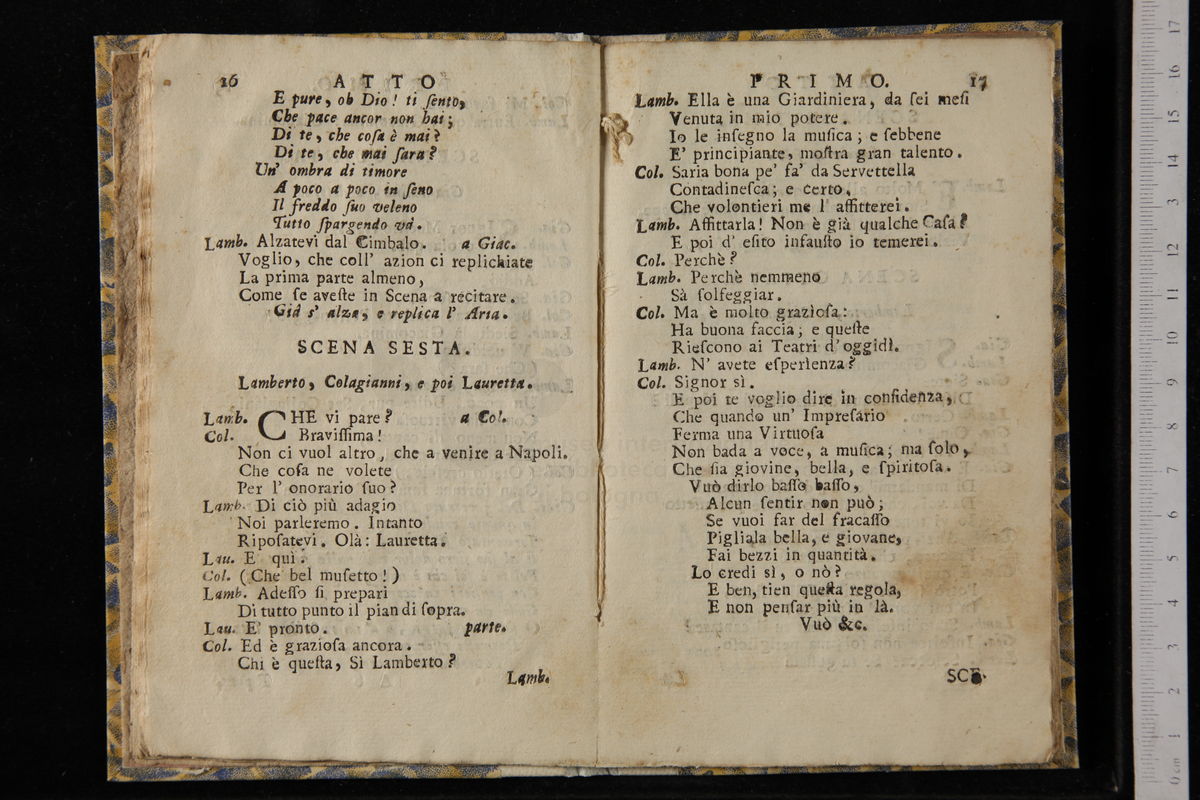 16 ATTO
E pure, oh Dio! ti ſento,
Che pace ancor non hai;
Di te, che coſa è mai?
Di te, che mai ſara?
Un' ombra di timore
A poco a poco in ſeno
Il freddo ſuo veleno
Tutto ſpargendo và.
Lamb. Alzatevi dal Cimbalo. a Giac.
Voglio, che coll' azion ci replichiate
La prima parte almeno,
Come ſe aveſte in Scena a recitare.
Già s' alza, e replica l' Aria.
SCENA SESTA.
Lamberto, Colagianni, e poi Lauretta.
Lamb. CHE vi pare? a Col.
Col. Braviſſima!
Non ci vuol altro, che a venire a Napoli.
Che coſa ne volete
Per l' onorario ſuo?
Lamb. Di ciò più adagio
Noi parleremo. Intanto
Ripoſatevi. Olà: Lauretta.
Lau. E' quì.
Col. (Che bel muſetto!)
Lamb. Adeſſo ſi prepari
Di tutto punto il pian di ſopra.
Lau. E' pronto. parte.
Col. Ed è grazioſa ancora.
Chi è queſta, Sì Lamberto?
Lamb.
PRIMO. 17
Lamb. Ella è una Giardiniera, da ſei meſi
Venuta in mio potere.
Io le inſegno la muſica; e ſebbene
E' principiante, moſtra gran talento.
Col. Saria bona pe' fa' da Servettella
Contadineſca; e certo,
Che volontieri me l' affitterei.
Lamb. Affittarla! Non è già qualche Caſa?
E poi d' eſito infauſto io temerei.
Col. Perchè?
Lamb. Perchè nemmeno
Sà ſolfeggiar.
Col. Ma è molto grazioſa:
Ha buona faccia; e queſte
Rieſcono ai Teatri d'oggidì.
Lamb. N' avete eſperienza?
Col. Signor sì.
E poi te voglio dire in confidenza,
Che quando un' Impreſario
Ferma una Virtuoſa
Non bada a voce, a muſica; ma ſolo,
Che ſia giovine, bella, e ſpiritoſa.
Vuò dirlo baſſo baſſo,
Alcun ſentir non può;
Se vuoi far del fracaſſo
Pigliala bella, e giovane,
Fai bezzi in quantità.
Lo credi sì, o nò?
E ben, tien queſta regola,
E non penſar più in là.
Vuò &c.
SCE-